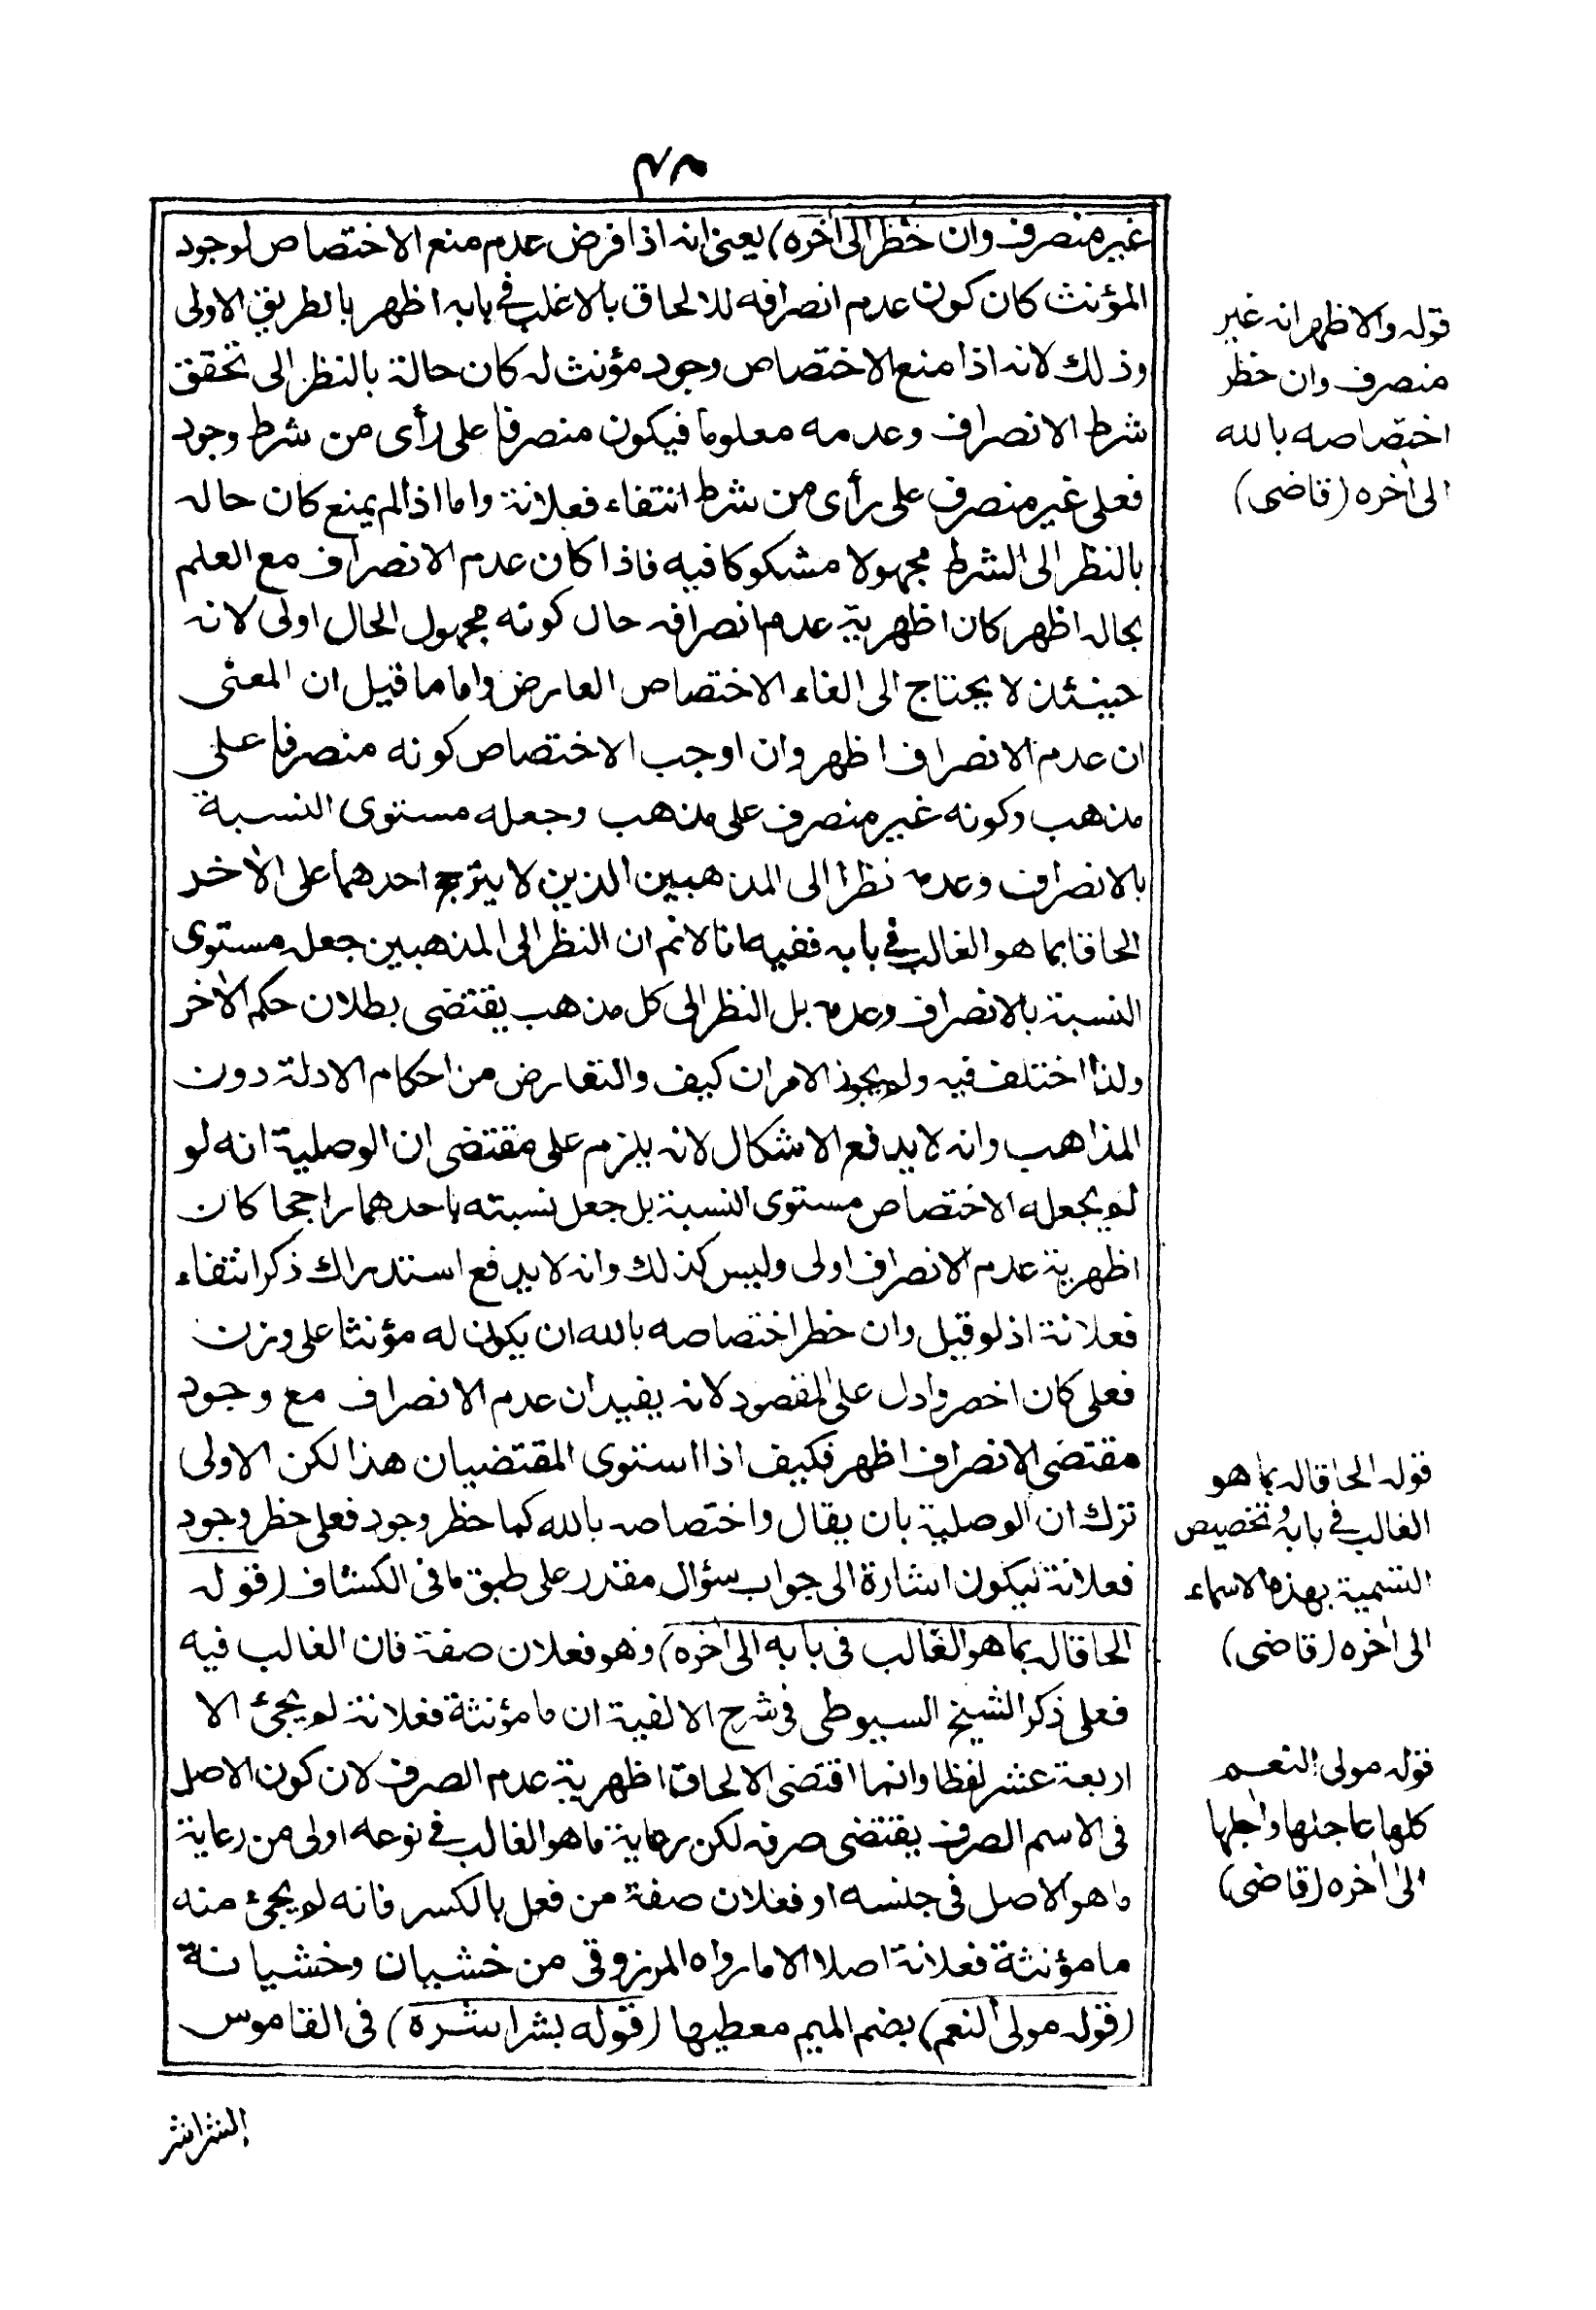 ٤٨
غير منصرف وان خظر الى أخره) يعنى انه اذا فرض عدم منع الاختصاص لوجود
المؤنث كان كون عدم انصرافه للالحاق بالاغلب فى بابه اظهر بالطريق الاولى
وذلك لانه اذا منع الاختصاص وجود مؤنث له كان حالة بالنظر الى تحقق
شرط الانصراف وعدمه معلوما فيكون منصرفا على رأى من شرط وجود
فعلى غير منصرف على رأى من شرط انتفاء فعلانة واما اذا لم يمنع كان حاله
بالنظر الى الشرط مجهولا مشكوكا فيه فاذا كان عدم الانصراف مع العلم
بحاله اظهر كان اظهرية عدم انصرافه حال كونه مجهول الحال اولى لانه
حينئذ لا يحتاج الى الغاء الاختصاص العارض واما ما قيل ان المعنى
ان عدم الانصراف اظهر وان اوجب الاختصاص كونه منصرفا على
مذهب وكونه غير منصرف على مذهب وجعله مستوى النسبة
بالانصراف وعدمه نظرا الى المذهبين الذين لا يترجح احدهما على الأخر
الحاقا بما هو الغالب فى بابه ففيه مانا لانم ان النظر الى المذهبين جعله مستوى
النسبة بالانصراف وعدمه بل النظر الى كل مذهب يقتضى بطلان حكم الأخر
ولذا اختلف فيه ولم يجوز الامران كيف والتعارض من احكام الادلة دون
المذاهب وانه لا يدفع الاشكال لانه يلزم على مقتضى ان الوصلية انه لو
لم يجعله الاختصاص مستوى النسبة بل جعل نسبته باحدهما راجحا كان
اظهرية عدم الانصراف اولى وليس كذلك وانه لا يدفع استدراك ذكر انتفاء
فعلانة اذ لو قيل وان خظر اختصاصه بالله ان يكون له مؤنثا على وزن
فعلى كان اخصر وادل على المقصود لانه يفيد ان عدم الانصراف مع وجود
مقتضى الانصراف اظهر فكيف اذا استوى المقتضيان هذا لكن الاولى
ترك ان الوصلية بان يقال واختصاصه بالله كما خظر وجود فعلى خظر وجود
فعلانة ليكون اشارة الى جواب سؤال مقدر على طبق ما فى الكشاف (قوله
الحاقا له بما هو الغالب فى بابه الى أخره) وهو فعلان صفة فان الغالب فيه
فعلى ذكر الشيخ السيوطى فى شرح الالفية ان ما مؤنثة فعلانة لم يجئ الا
اربعة عشر لفظا وانما اقتضى الالحاق اظهرية عدم الصرف لان كون الاصل
فى الاسم الصرف يقتضى صرفه لكن رعاية ما هو الغالب فى نوعه اولى من رعاية
ما هو الاصل فى جنسه او فعلان صفة من فعل بالكسر فانه لم يجئ منه
ما مؤنثة فعلانة اصلا الا ما رواه المرزوقى من خشيان وخشيانة
(قوله مولى النعم) بضم الميم معطيها (قوله بشراشره) فى القاموس
قوله والاظهر انه غير
منصرف وان خظر
اختصاصه بالله
الى أخره (قاضى)
قوله الحاقا له بما هو
الغالب فى بابه وتخصيص
التسمية بهذه الاسماء
الى أخره (قاضى)
قوله مولى النعم
كلها عاجلها وأجلها
الى أخره (قاضى)
الشراشر